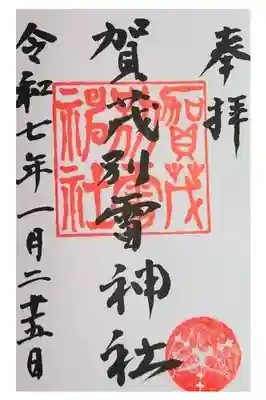 奉拝
賀茂別雷神社
賀茂
神社
令和七年一月二十五日